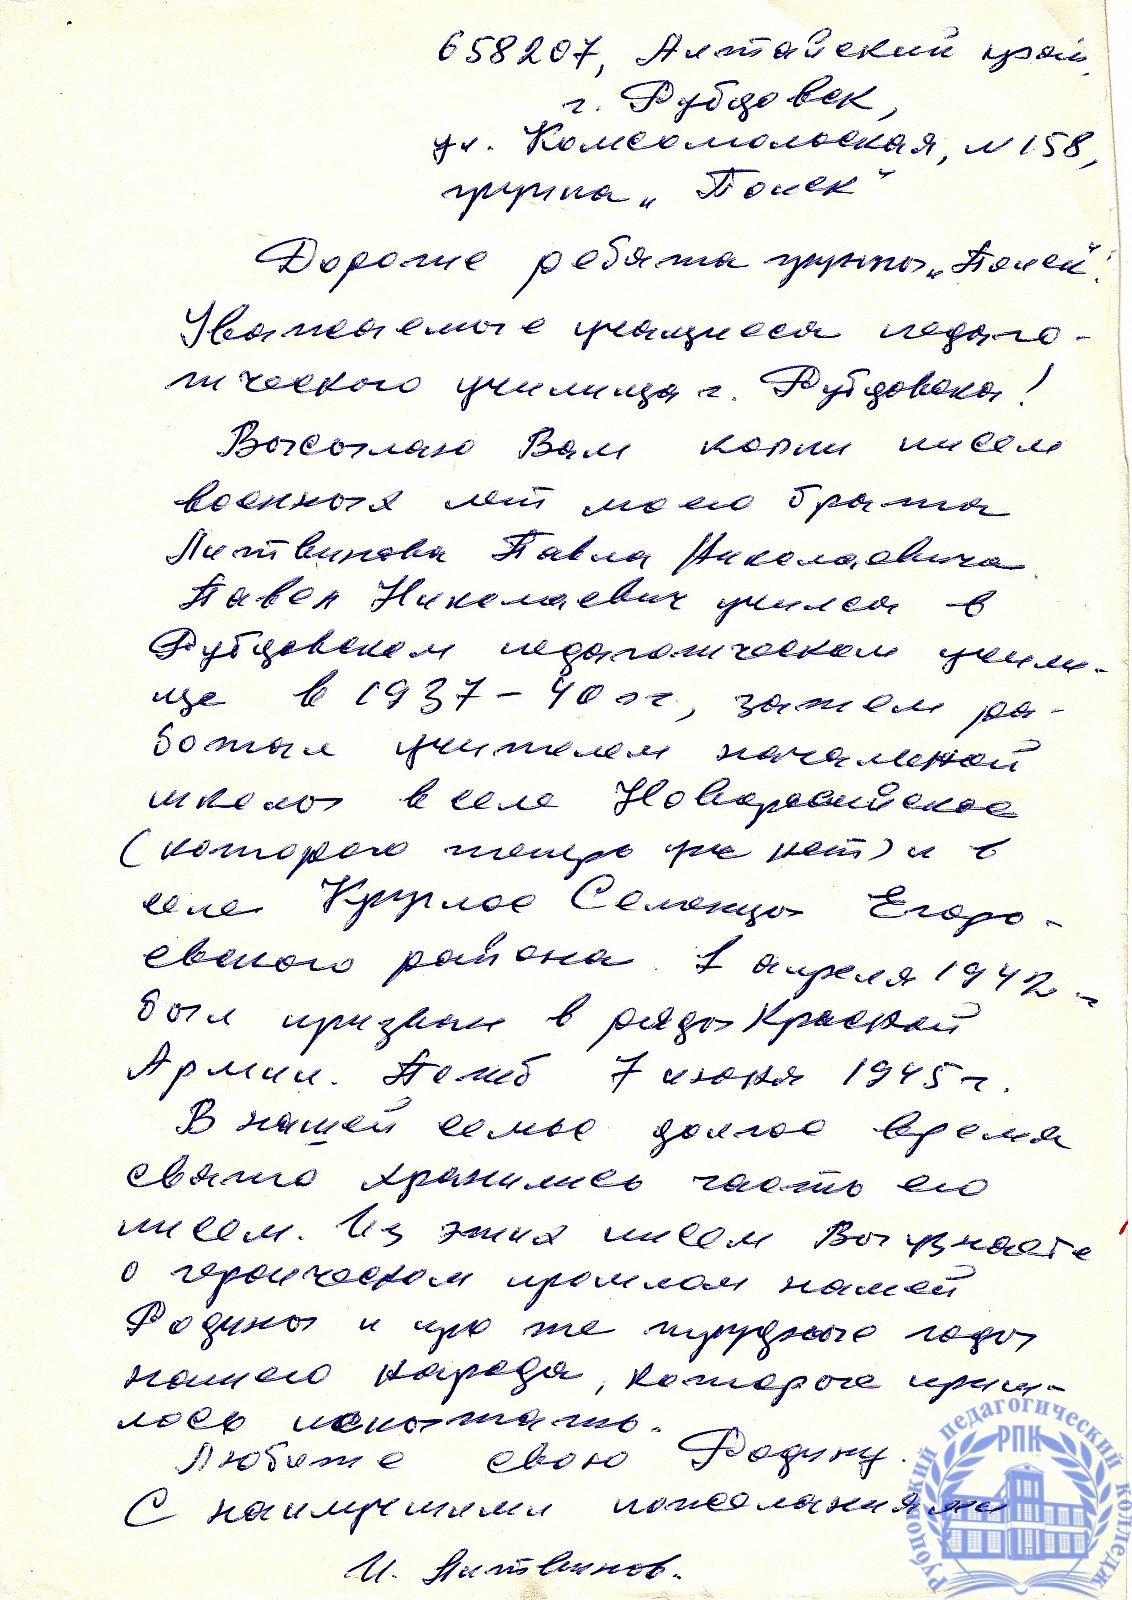 658207, Алтайский край,
г. Рубцовск,
ул. Комсомольская, № 158,
группа „Поиск"
Дорогие ребята группы „Поиск"!
Уваж��емые учащиеся педаго-
гического училища г. Рубцовска!
Высылаю Вам копии писем
военных лет моего брата
Литвинова Павла Николаевича.
Павел Николаевич учился в
Рубцовском педагогическом учили-
ще в 1937-40 гг, затем ра-
ботал учителем начальной
школы в селе Новоросийское
(которого теперь уже нет) и в
селе Круглое Семенцы Егорь-
евского района. 1 апреля 1942 г
был призван в ряды Красной
Армии. Погиб 7 июня 1945 г.
В нашей семье долгое время
свято хранились часть его
писем. Из этих писем Вы узнаете
о героическом прошлом нашей
Родины и про те трудные годы
нашего народа, которые приш-
лось испытать.
Любите свою Родину.
С наилучшими пожеланиями
И. Литвинов.
Рубцовский педагогический колледж
РПК